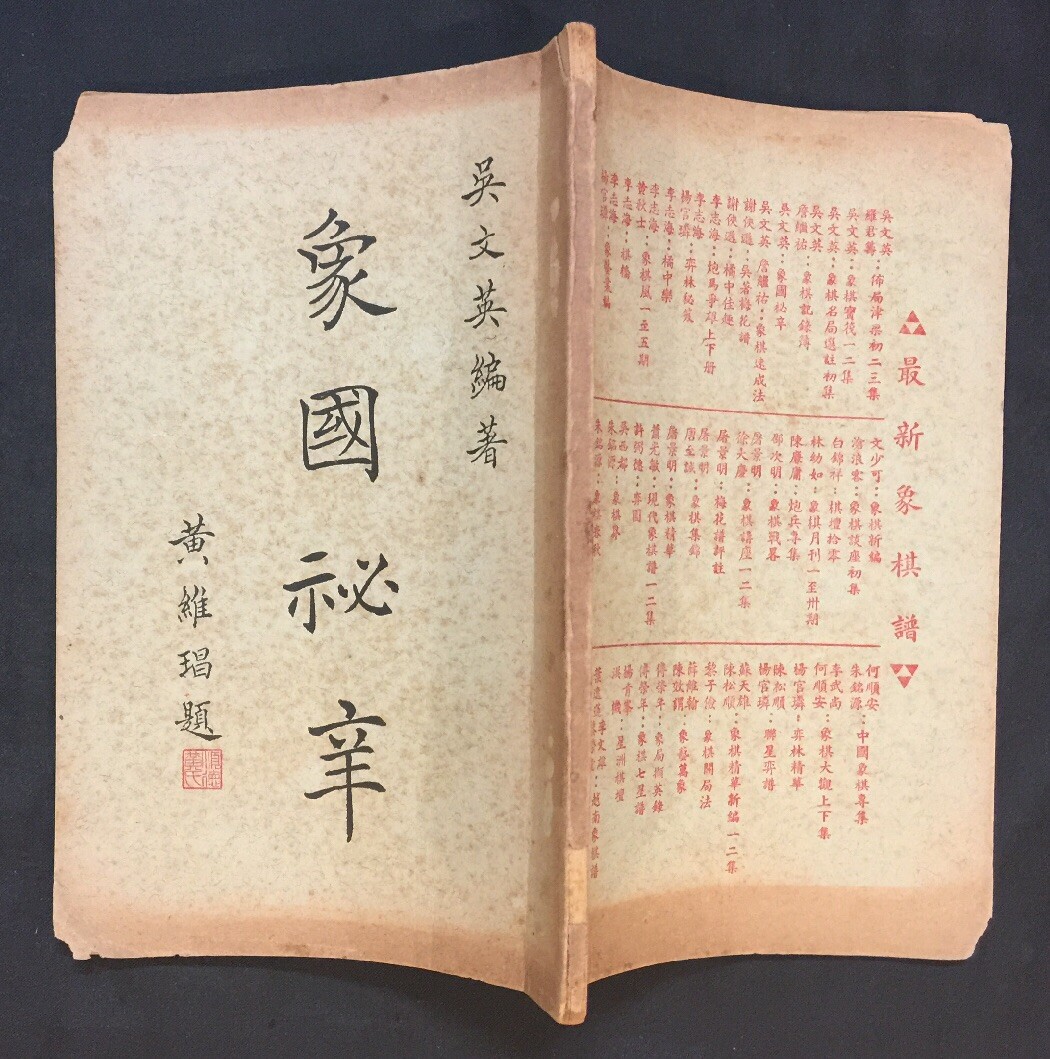 吳文英編著
象國祕辛
黃維琩題
最新象棋譜
吳文英
羅君籌：佈局津梁初二三集
吳文英：象棋寶筏一二集
吳文英：象棋名局選註初集
吳文英
詹繼祐：象棋記錄簿
吳文英：象國祕辛
吳文英 詹繼祐：象棋速成法
謝俠遜：吳著梅花譜
謝俠遜：橘中佳趣
李志海：炮馬爭雄上下册
李志海
楊官璘：弈林秘笈
李志海：橘中樂
李志海
黃秋士：象棋風一至五期
李志海：棋橋
李志海
楊官璘：象藝叢編
文少可：象棋新編
滄浪客：象棋談座初集
白錦祥：棋壇拾零
林幼如：象棋月刊一至卅期
陳慶庸：炮兵專集
鄧次明：象棋戰畧
屠景明
徐大慶：象棋講座一二集
屠景明：梅花譜評註
屠景明
屠至誠：象棋集錦
屠景明：象棋精華
蕭元敵：現代象棋譜一二集
許弼德：弈圃
吳西都
朱銘源：象棋界
何順安
朱銘源：中國象棋專集
李武尚
何順安：象棋大觀上下集
楊官璘：弈林精華
陳松順
楊官璘：聯星弈譜
蘇天雄
陳松順：象棋精華新編一二集
黎子儉：象棋開局法
薛維翰
陳效謂：象藝萬象
傅榮年：象局擷英錄
傅榮年：象棋七星譜
楊肯夢
洪機：星洲棋壇
越南象棋譜